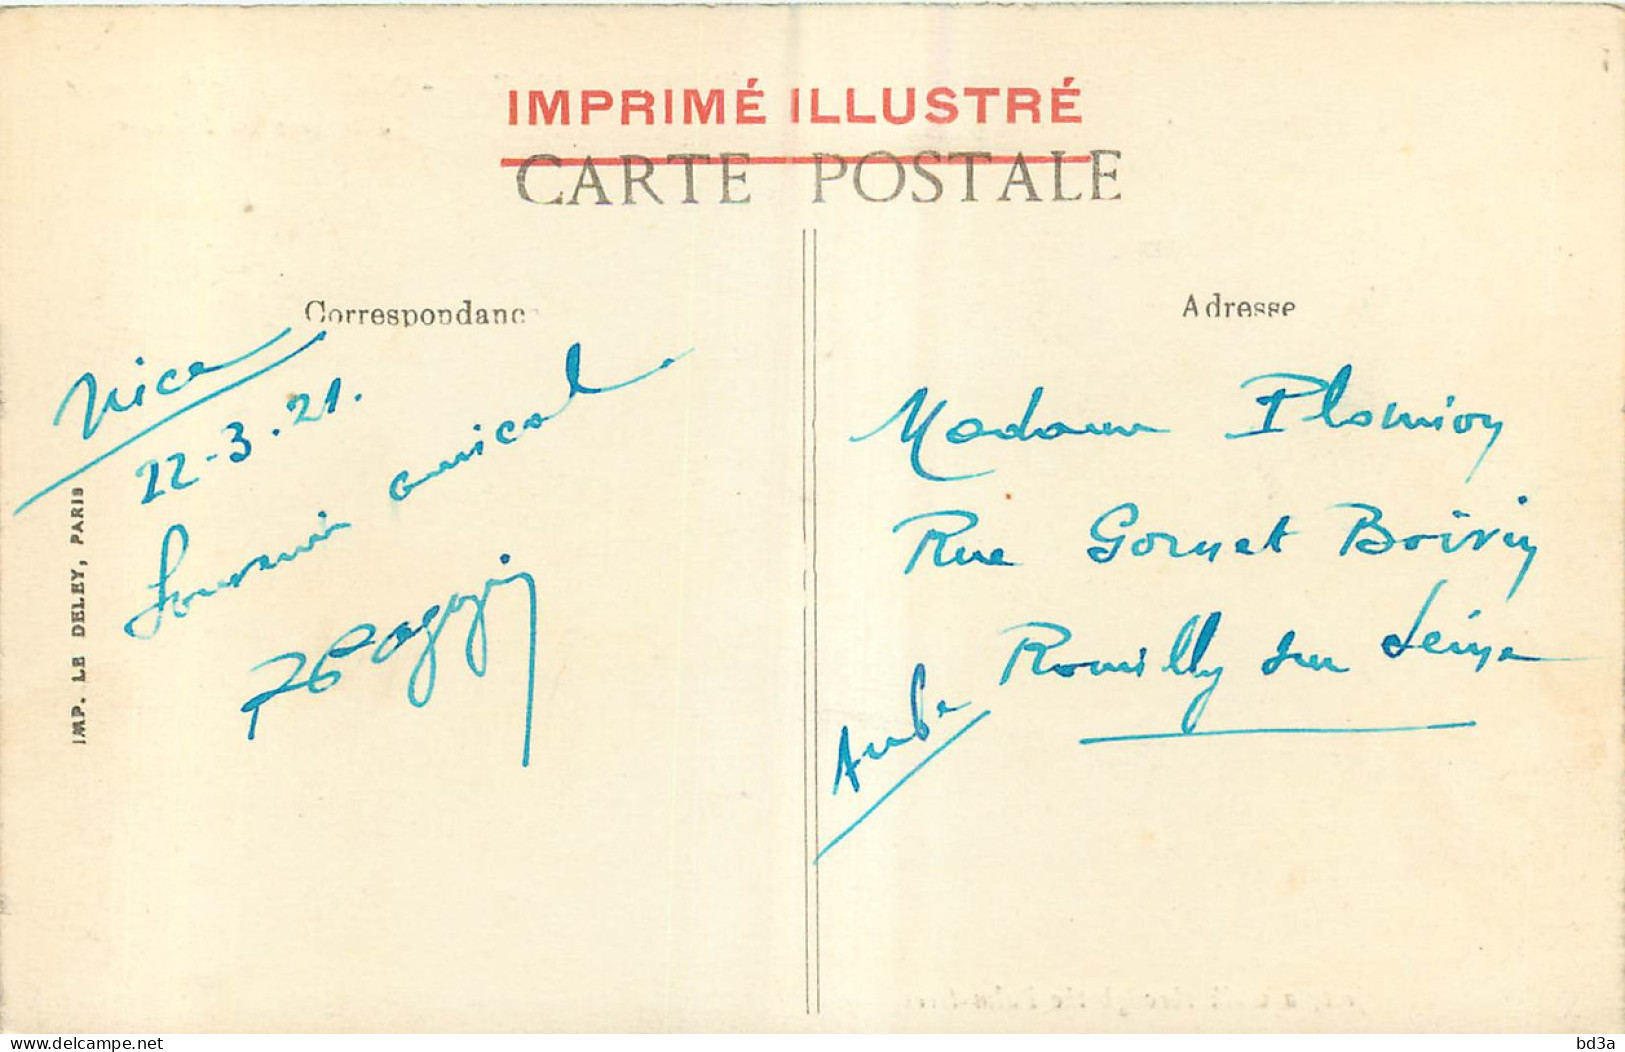 IMPRIMÉ ILLUSTRÉ
CARTE POSTALE
Correspondanc
Nice
22-3.21.
Souvenir amical
IMP. LE DELEY, PARIS
Adresse
Madame Plomion
Rue Gornet Boivin
Romilly sur Seine
Aube
delcampe.net
bd3a